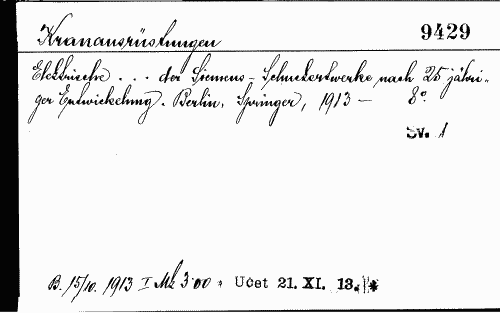 Kranausrüstungen 9429
Elektrische . . . der Siemens-Schuckertwerke nach 25 jähri-
ger Entwickelung. Berlin, Springer, 1913 — 8°.
Sv. 1
B. 15/10. 1913 I Mk 3·00 Účet 21. XI. 13.